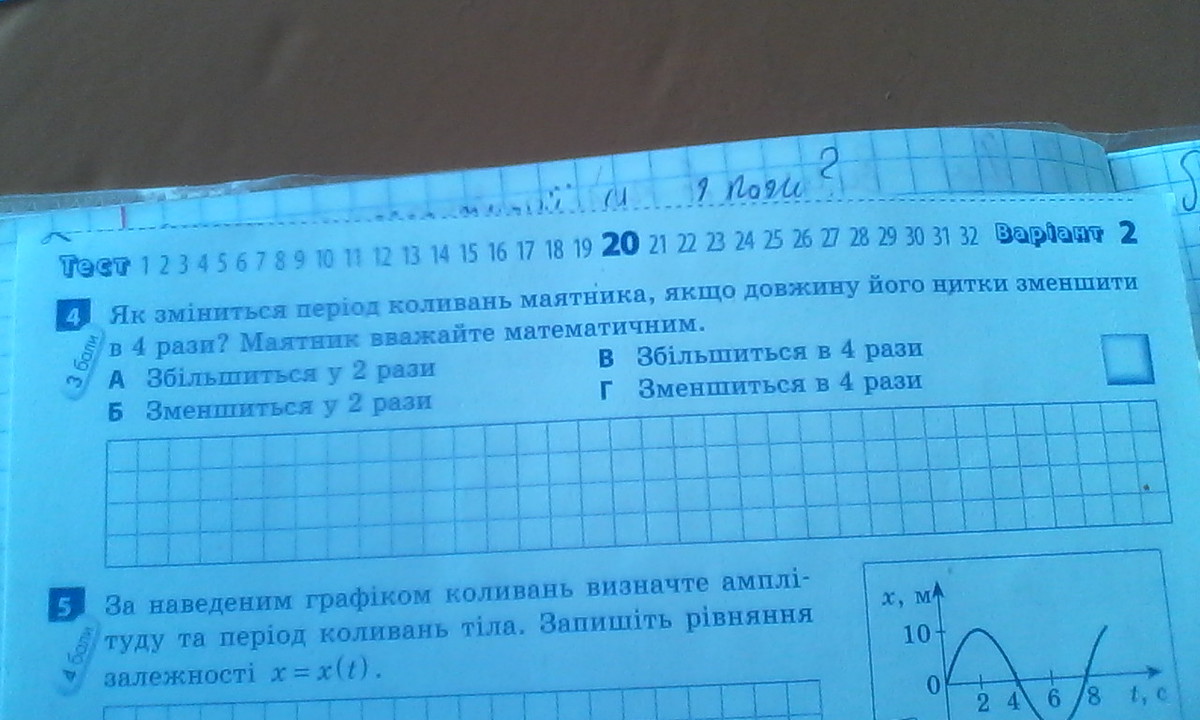 я пояи?
Тест 1 2 3 4 5 6 7 8 9 10 11 12 13 14 15 16 17 18 19 20 21 22 23 24 25 26 27 28 29 30 31 32 Варіант 2
4 Як зміниться період коливань маятника, якщо довжину його нитки зменшити
3 бали
в 4 рази? Маятник вважайте математичним.
А Збільшиться у 2 рази
В Збільшиться в 4 рази
Б Зменшиться у 2 рази
Г Зменшиться в 4 рази
5 За наведеним графіком коливань визначте амплі-
4 бали
туду та період коливань тіла. Запишіть рівняння
залежності x = x(t).
x, м
10
0
2 4 6 8 t, с